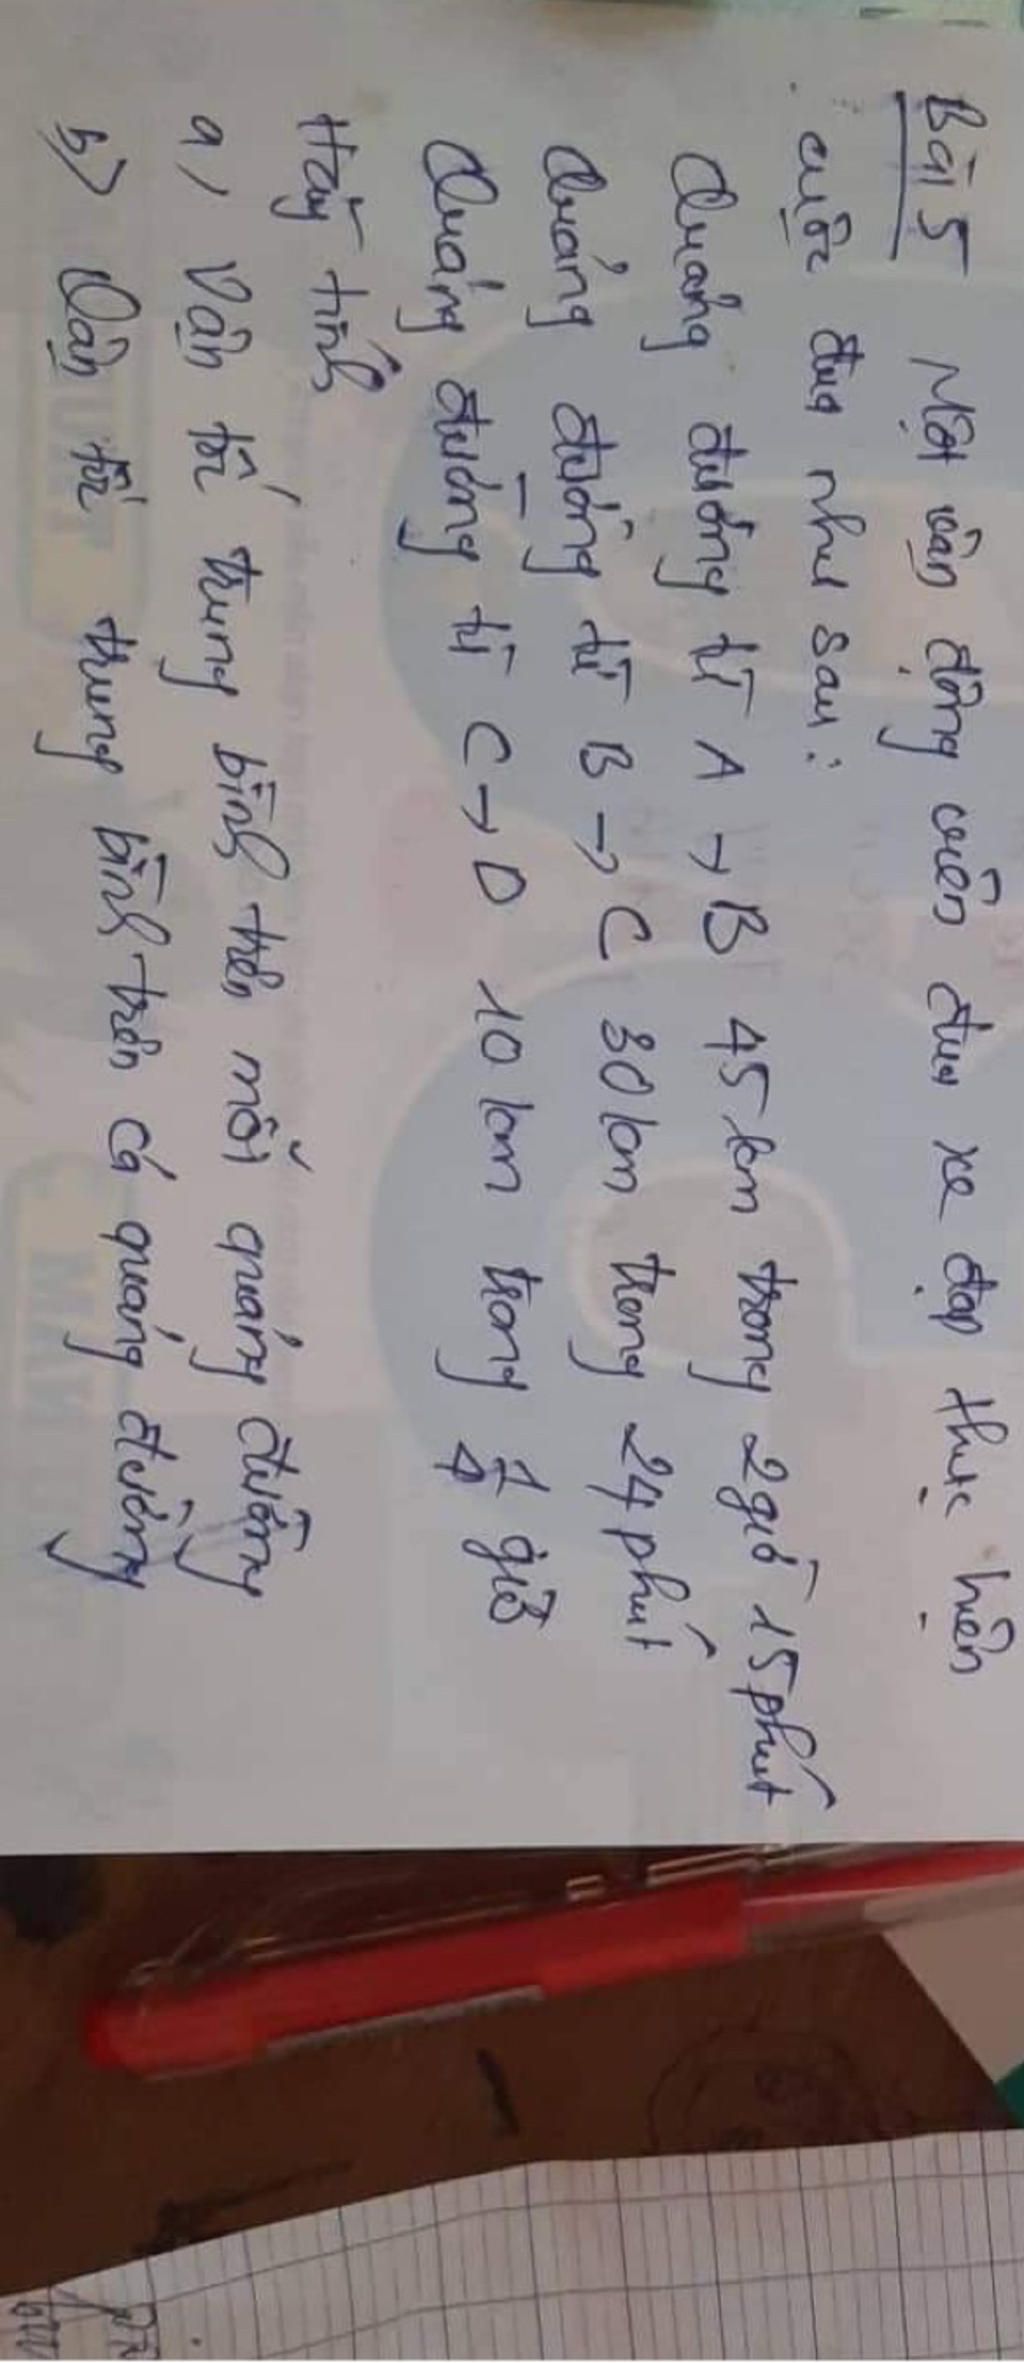 Bài 5 Một vận động viên đua xe đạp thực hiện
cuộc đua như sau:
Quảng đường từ A → B 45 km trong 2 giờ 15 phút
Quảng đường từ B → C 30 km trong 24 phút
Quảng đường từ C → D 10 km trong 1/4 giờ
Hãy tính
a, Vận tốc trung bình trên mỗi quảng đường
b) Vận tốc trung bình trên cả quảng đường